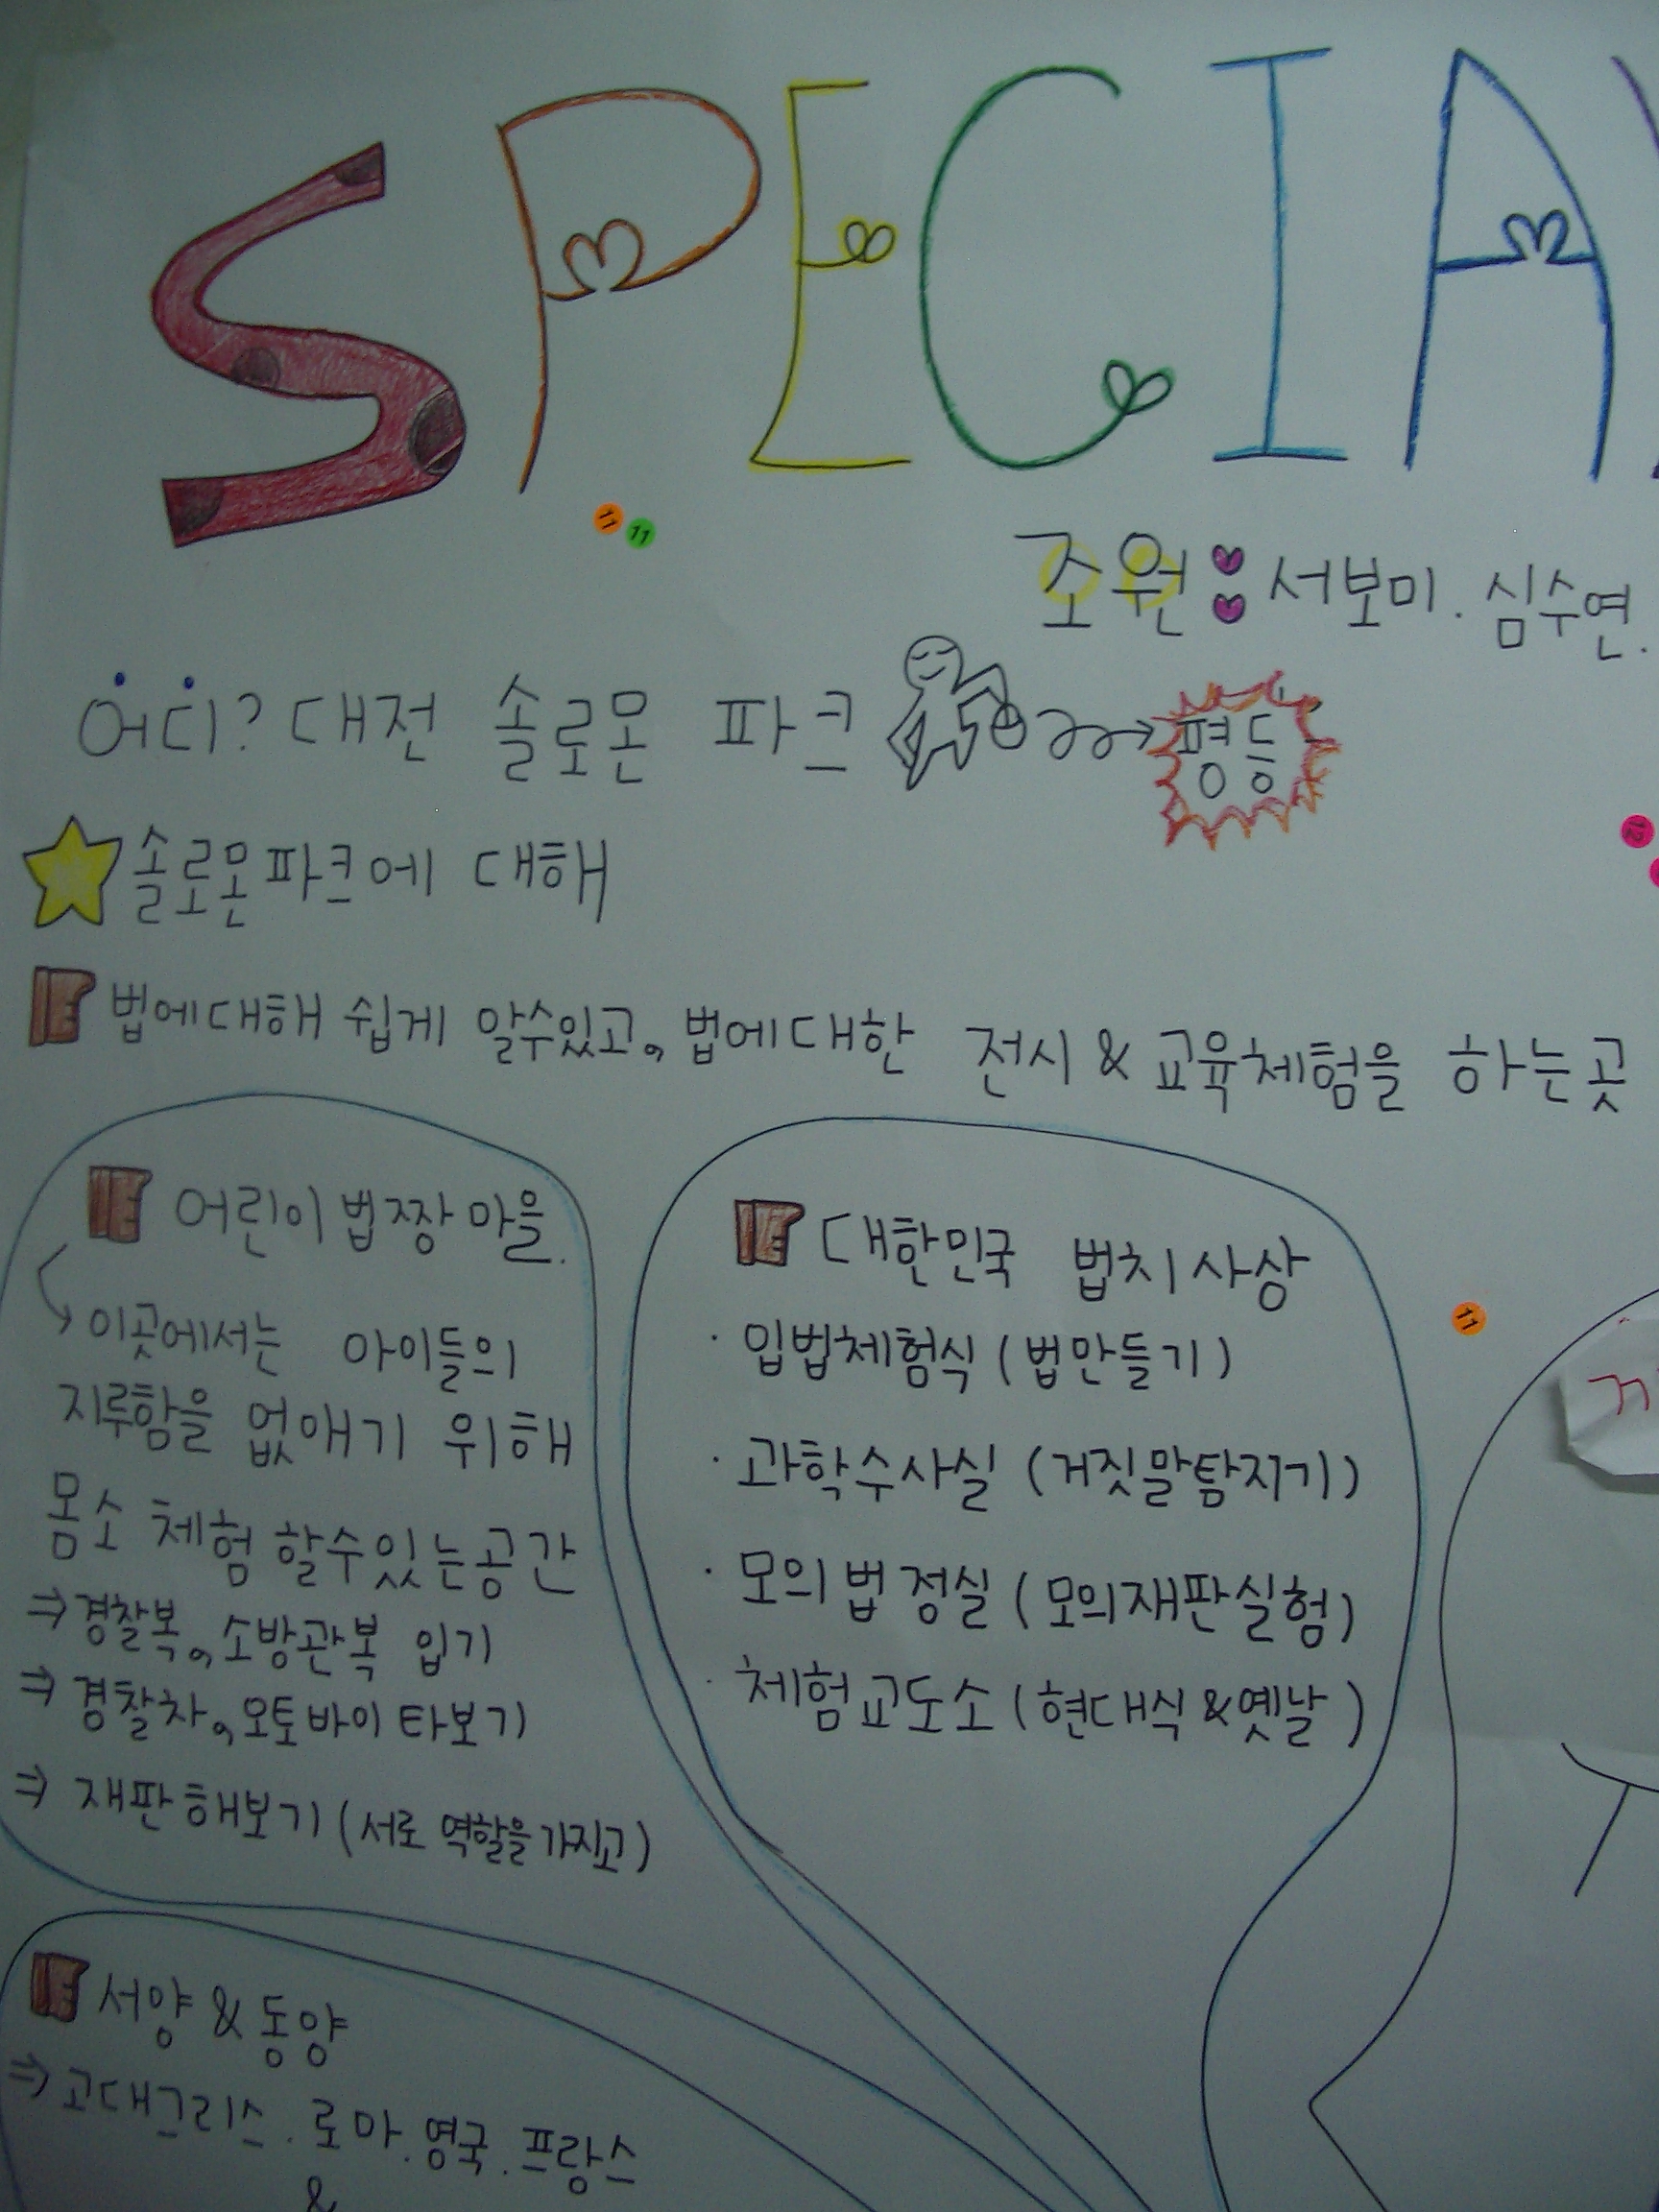 SPECIA
11 11
조원 : 서보미. 심수연.
어디? 대전 솔로몬 파크
평등
솔로몬파크에 대해
12
법에대해 쉽게 알수있고, 법에대한 전시 & 교육체험을 하는곳
어린이법짱마을.
이곳에서는 아이들의
지루함을 없애기 위해
몸소 체험 할수있는공간
⇒ 경찰복, 소방관복 입기
⇒ 경찰차, 오토바이 타보기
⇒ 재판해보기 (서로 역할을가지고)
대한민국 법치사상
· 입법체험식 (법만들기)
· 과학수사실 (거짓말탐지기)
· 모의법정실 (모의재판실험)
· 체험교도소 (현대식&옛날)
11
서양 & 동양
⇒ 고대그리스. 로마. 영국. 프랑스
&